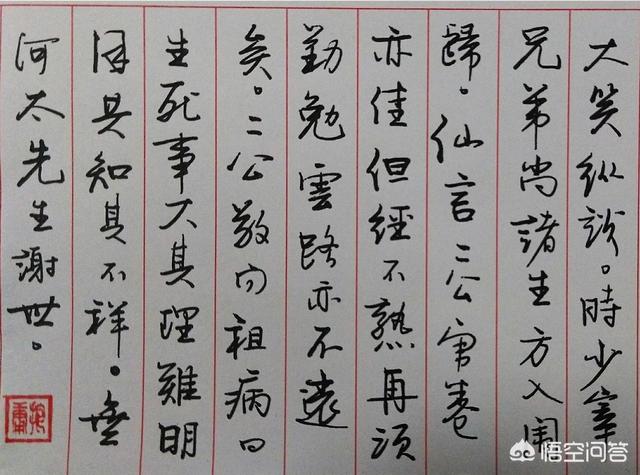 大笑纵談。時少宰
兄弟尚諸生方入闱
歸。仙言二公卷
亦佳但經不熟再须
勤勉雲路亦不遠
矣。二公敬问祖病曰
生死事大其理難明
因具知其不祥。無
何太先生謝世。
悟空问答